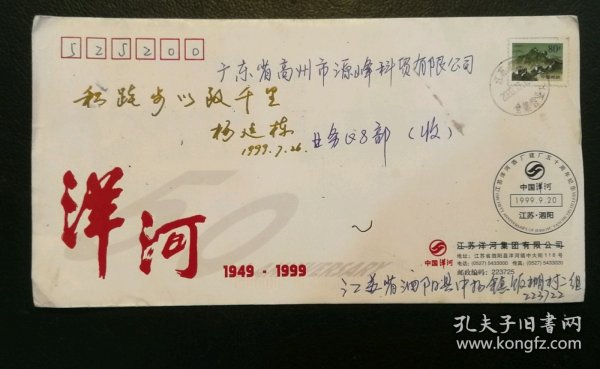 525200
80分
广东省高州市源峰科贸有限公司
积跬步以致千里
杨廷栋
1999.7.26
业务四部（收）
江苏洋河酒厂建厂五十周年纪念
中国洋河
1999.9.20
江苏·泗阳
洋河
50
ANNIVERSARY
1949·1999
中国洋河
江苏洋河集团有限公司
地址：江苏省泗阳县洋河镇中大街118号
电话：(0527) 5433000 传真：(0527) 5433020
邮政编码：223725
江苏省泗阳县中扬镇
村二组
223722
孔夫子旧书网
www.kongfz.com